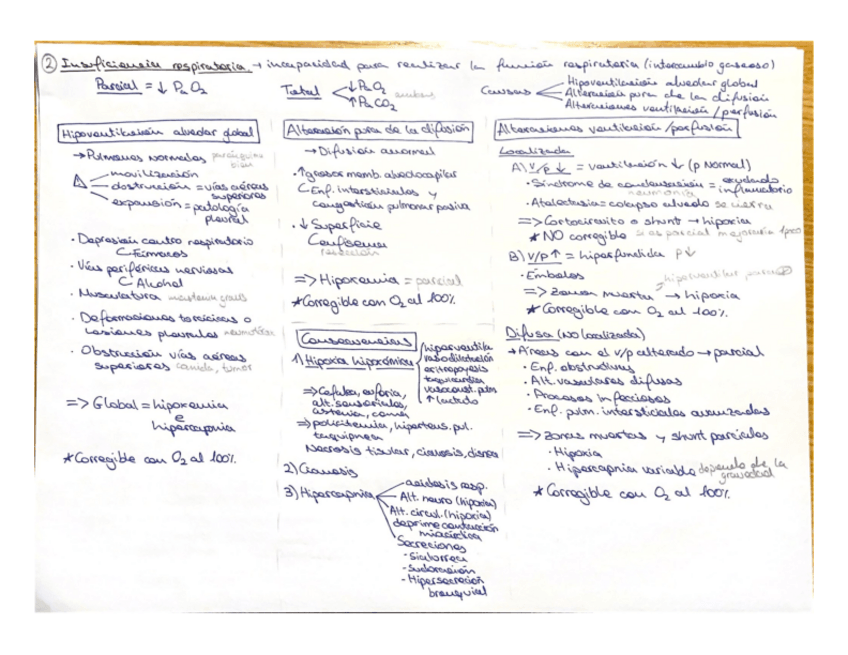 ② Insuficiencia respiratoria → incapacidad para realizar la función respiratoria (intercambio gaseoso)
Parcial = ↓ PaO2
Total
↓PaO2
↑PaCO2
Causas
Hipoventilación alveolar global
Alteración pura de la difusión
Alteraciones ventilación/perfusión
Hipoventilación alveolar global
→ Pulmones normales parénquima bien
movilización
obstrucción = vías aéreas superiores
expansión = patología pleural
· Depresión centro respiratorio
Fármacos
· Vías periféricas nerviosas
Alcohol
· Musculatura miastenia gravis
· Deformaciones torácicas o
lesiones pleurales neumotórax
· Obstrucción vías aéreas
superiores cuerda, tumor
=> Global = hipoxemia
e
hipercapnia
* Corregible con O2 al 100%
Alteración pura de la difusión
→ Difusión anormal
· ↑ grosor memb. alveolocapilar
Enf. intersticiales y
congestión pulmonar pasiva
· ↓ Superficie
Enfisema
resección
=> Hipoxemia = parcial
* Corregible con O2 al 100%.
Consecuencias
1) Hipoxia hipoxémica
hiperventila
vasodilatación
eritropoyesis
taquicardia
vasoconst. pulm
↑ lactato
=> Cefalea, euforia,
alt. sensoriales,
astenia, coma
=> policitemia, hipertens. pul.
taquipnea
Necrosis tisular, cianosis, disnea
2) Cianosis
3) Hipercapnia
acidosis resp.
Alt. neuro (hipoxia)
Alt. circul. (hipoxia)
deprime contracción
miocárdica
Secreciones
· sialorrea
· sudoración
· Hipersecreción
bronquial
Alteraciones ventilación/perfusión
Localizada
A) V/P ↓ = ventilación ↓ (p Normal)
· Síndrome de condensación = exudado inflamatorio
neumonía
· Atelectasia: colapso alveolo se cierra
=> Cortocircuito o shunt → hipoxia
* NO corregible si es parcial mejoraría
B) V/P ↑ = hiperfundida P↓
· Émbolos
hiperventilar
=> Zonas muertas → hipoxia
* Corregible con O2 al 100%.
Difusa (No localizada)
→ Áreas con el v/p alterado → parcial
· Enf. obstructivas
· Alt. vasculares difusas
· Procesos infecciosos
· Enf. pulm. intersticiales avanzadas
=> zonas muertas y shunt parciales
· Hipoxia
· Hipercapnia variable depende de la gravedad
* Corregible con O2 al 100%.